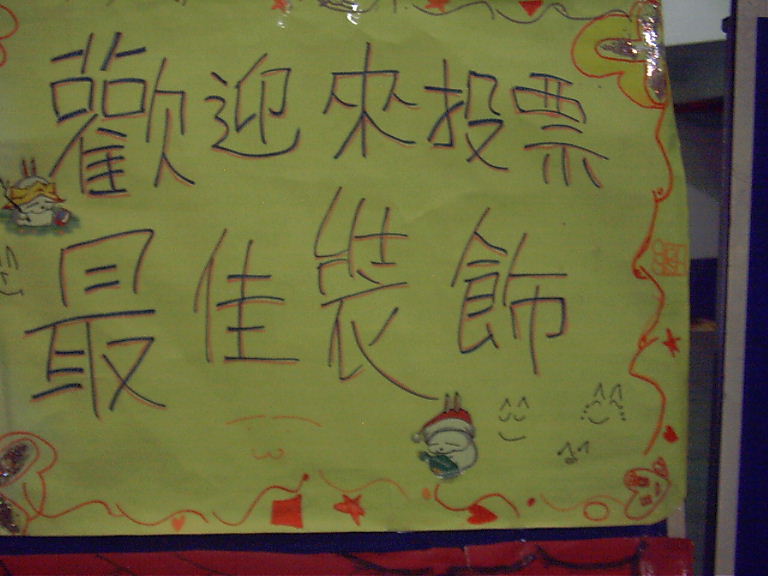 歡迎來投票
最佳裝飾